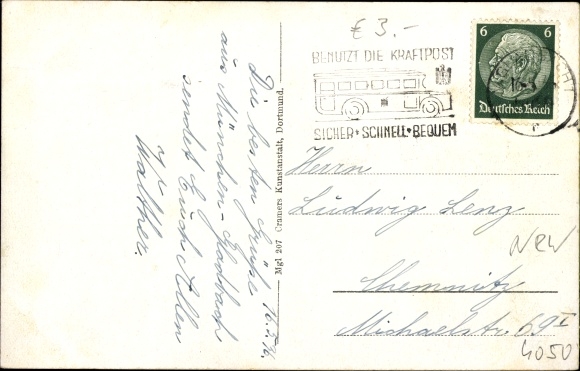 € 3.-
BENUTZT DIE KRAFTPOST
SICHER • SCHNELL • BEQUEM
6 6
Deutsches Reich
Die besten Grüße
aus München-Gladbach
sendet Euch Allen
Walther.
16.3.
Mgl 207 Cramers Kunstanstalt, Dortmund.
Herrn
Ludwig Lenz
Chemnitz
Michaelstr. 69 I
NRW
4050